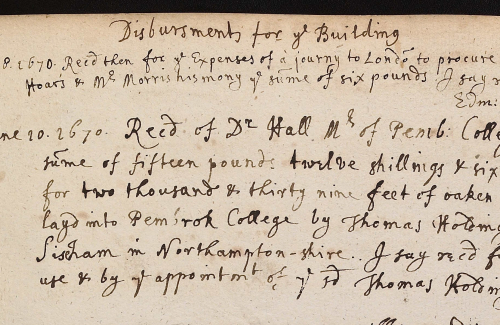 Disbursments for yͤ Building
8. 1670. Recd then for yͤ Expenses of a journy to Londō to procure
Hoar's & Mʳ Morris his mony yͤ sūme of six pounds. I say r
Edm:
ne 10. 1670. Recd of Dʳ Hall Mʳ of Pemb: Colle
sūme of fifteen pounds twelve shillings & six
for two thousand & thirty nine feet of oaken
layd into Pembrok College by Thomas Holdin
Sisham in Northampton-shire.. I say recd f
use & by yͤ appointmt of yͤ sd Thomas Holdin